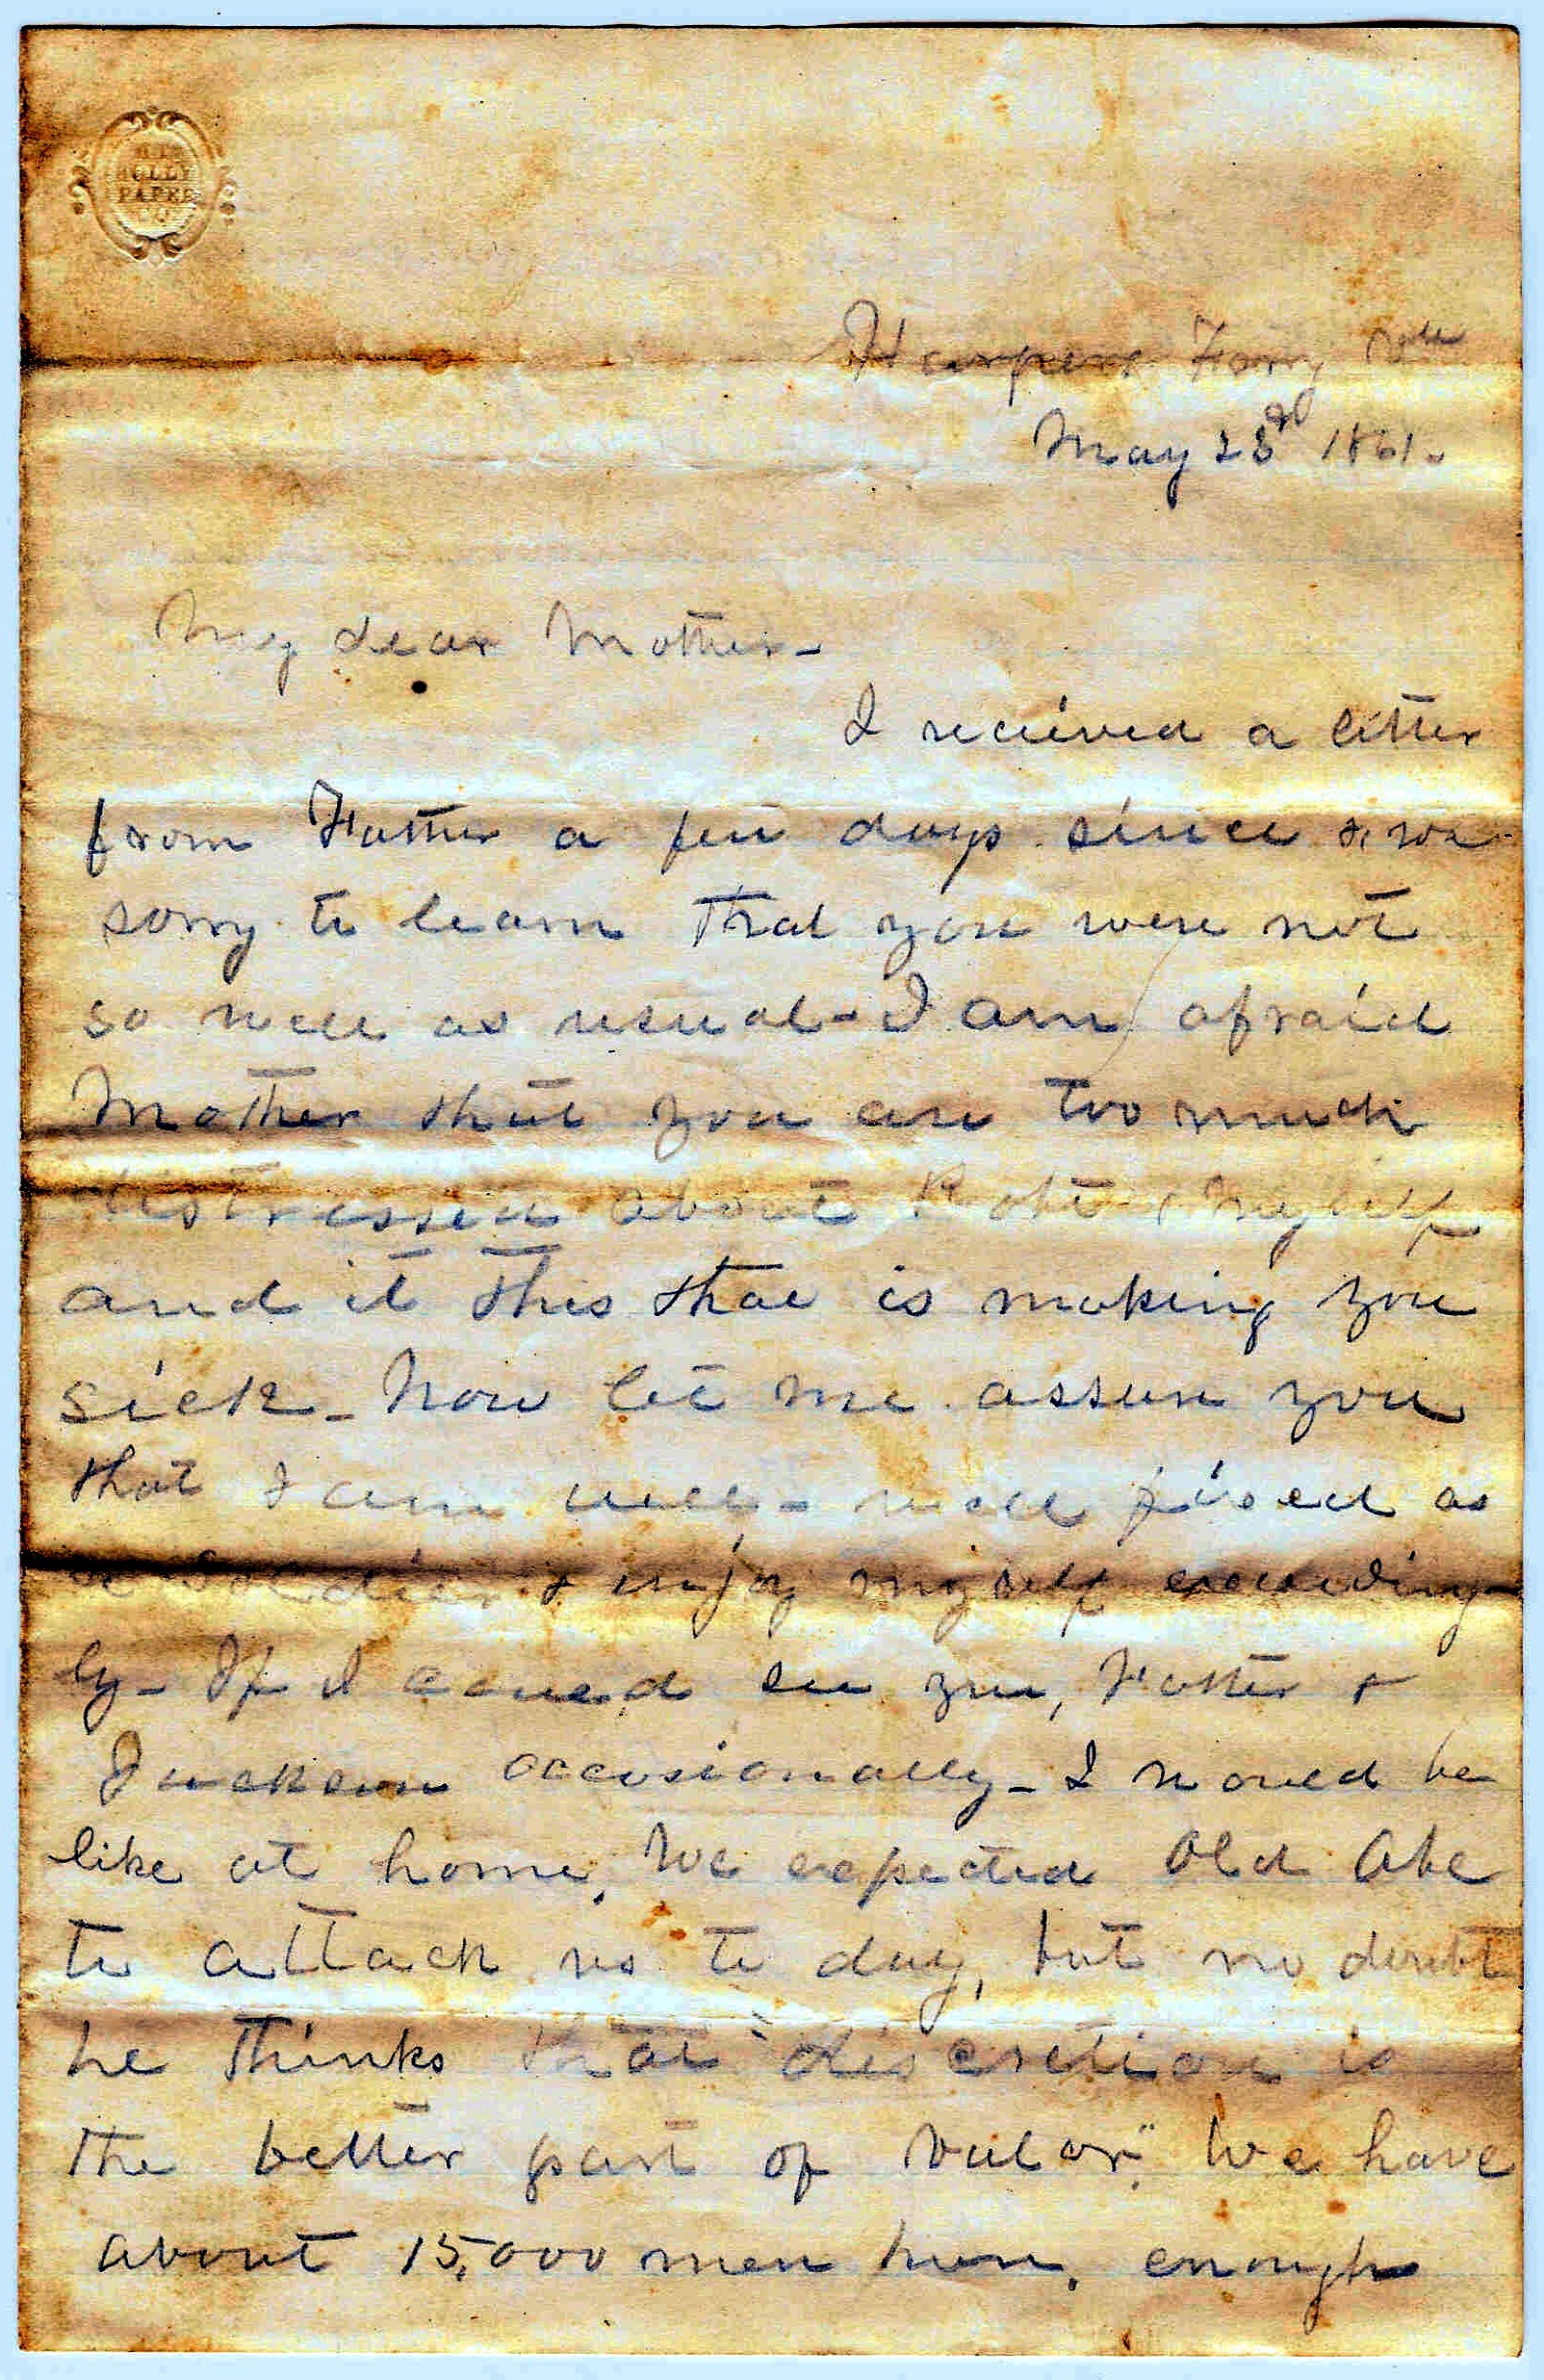 MT
HOLLY
PAPER
CO
Harpers Ferry
May 23d 1861.
My dear Mother-
I recieved a letter
from Father a few days since & was
sorry to learn that you were not
so well as usual - I am afraid
Mother that you are too much
distressed about Robt & Myself
and it this that is making you
sick - Now let me assure you
that I am well - well fixed as
a Soldier & enjoy myself exceeding-
ly - If I could see you, Father &
occasionally - I would be
like at home. We expected Old Abe
to attack us to day, but no doubt
he thinks that "discretion is
the better part of valor". We have
about 15,000 men here, enough